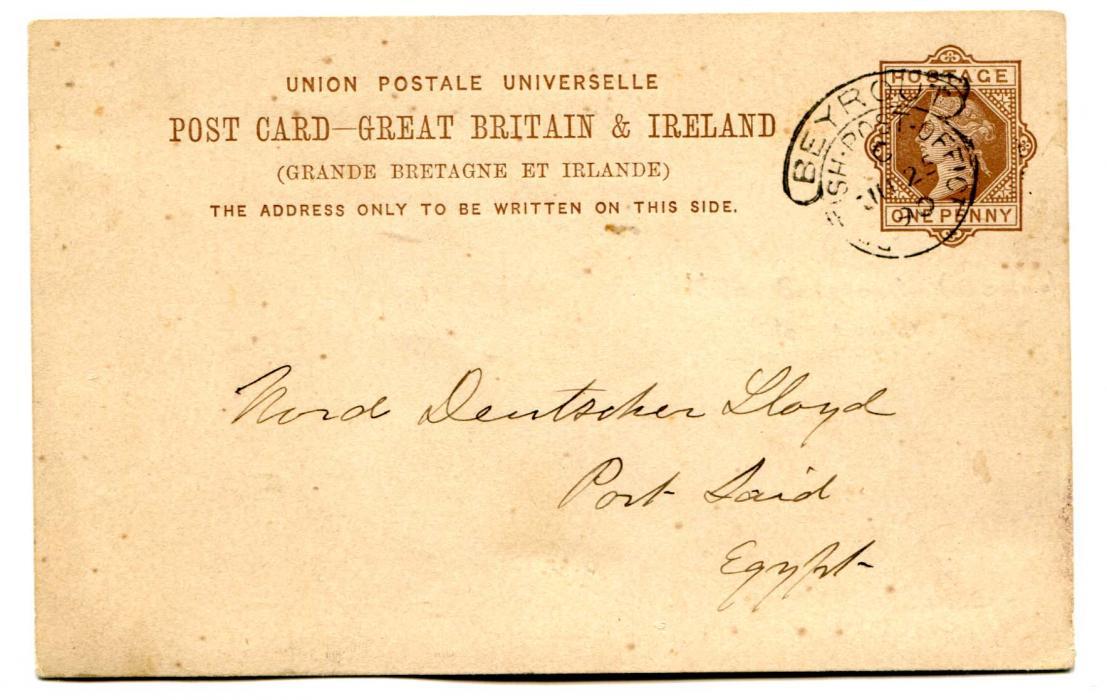 UNION POSTALE UNIVERSELLE
POST CARD—GREAT BRITAIN & IRELAND
(GRANDE BRETAGNE ET IRLANDE)
THE ADDRESS ONLY TO BE WRITTEN ON THIS SIDE.
POSTAGE
ONE PENNY
BEYROUT
ISH-POST-OFFICE
C
JU 25
90
Nord Deutscher Lloyd
Port Said
Egypt